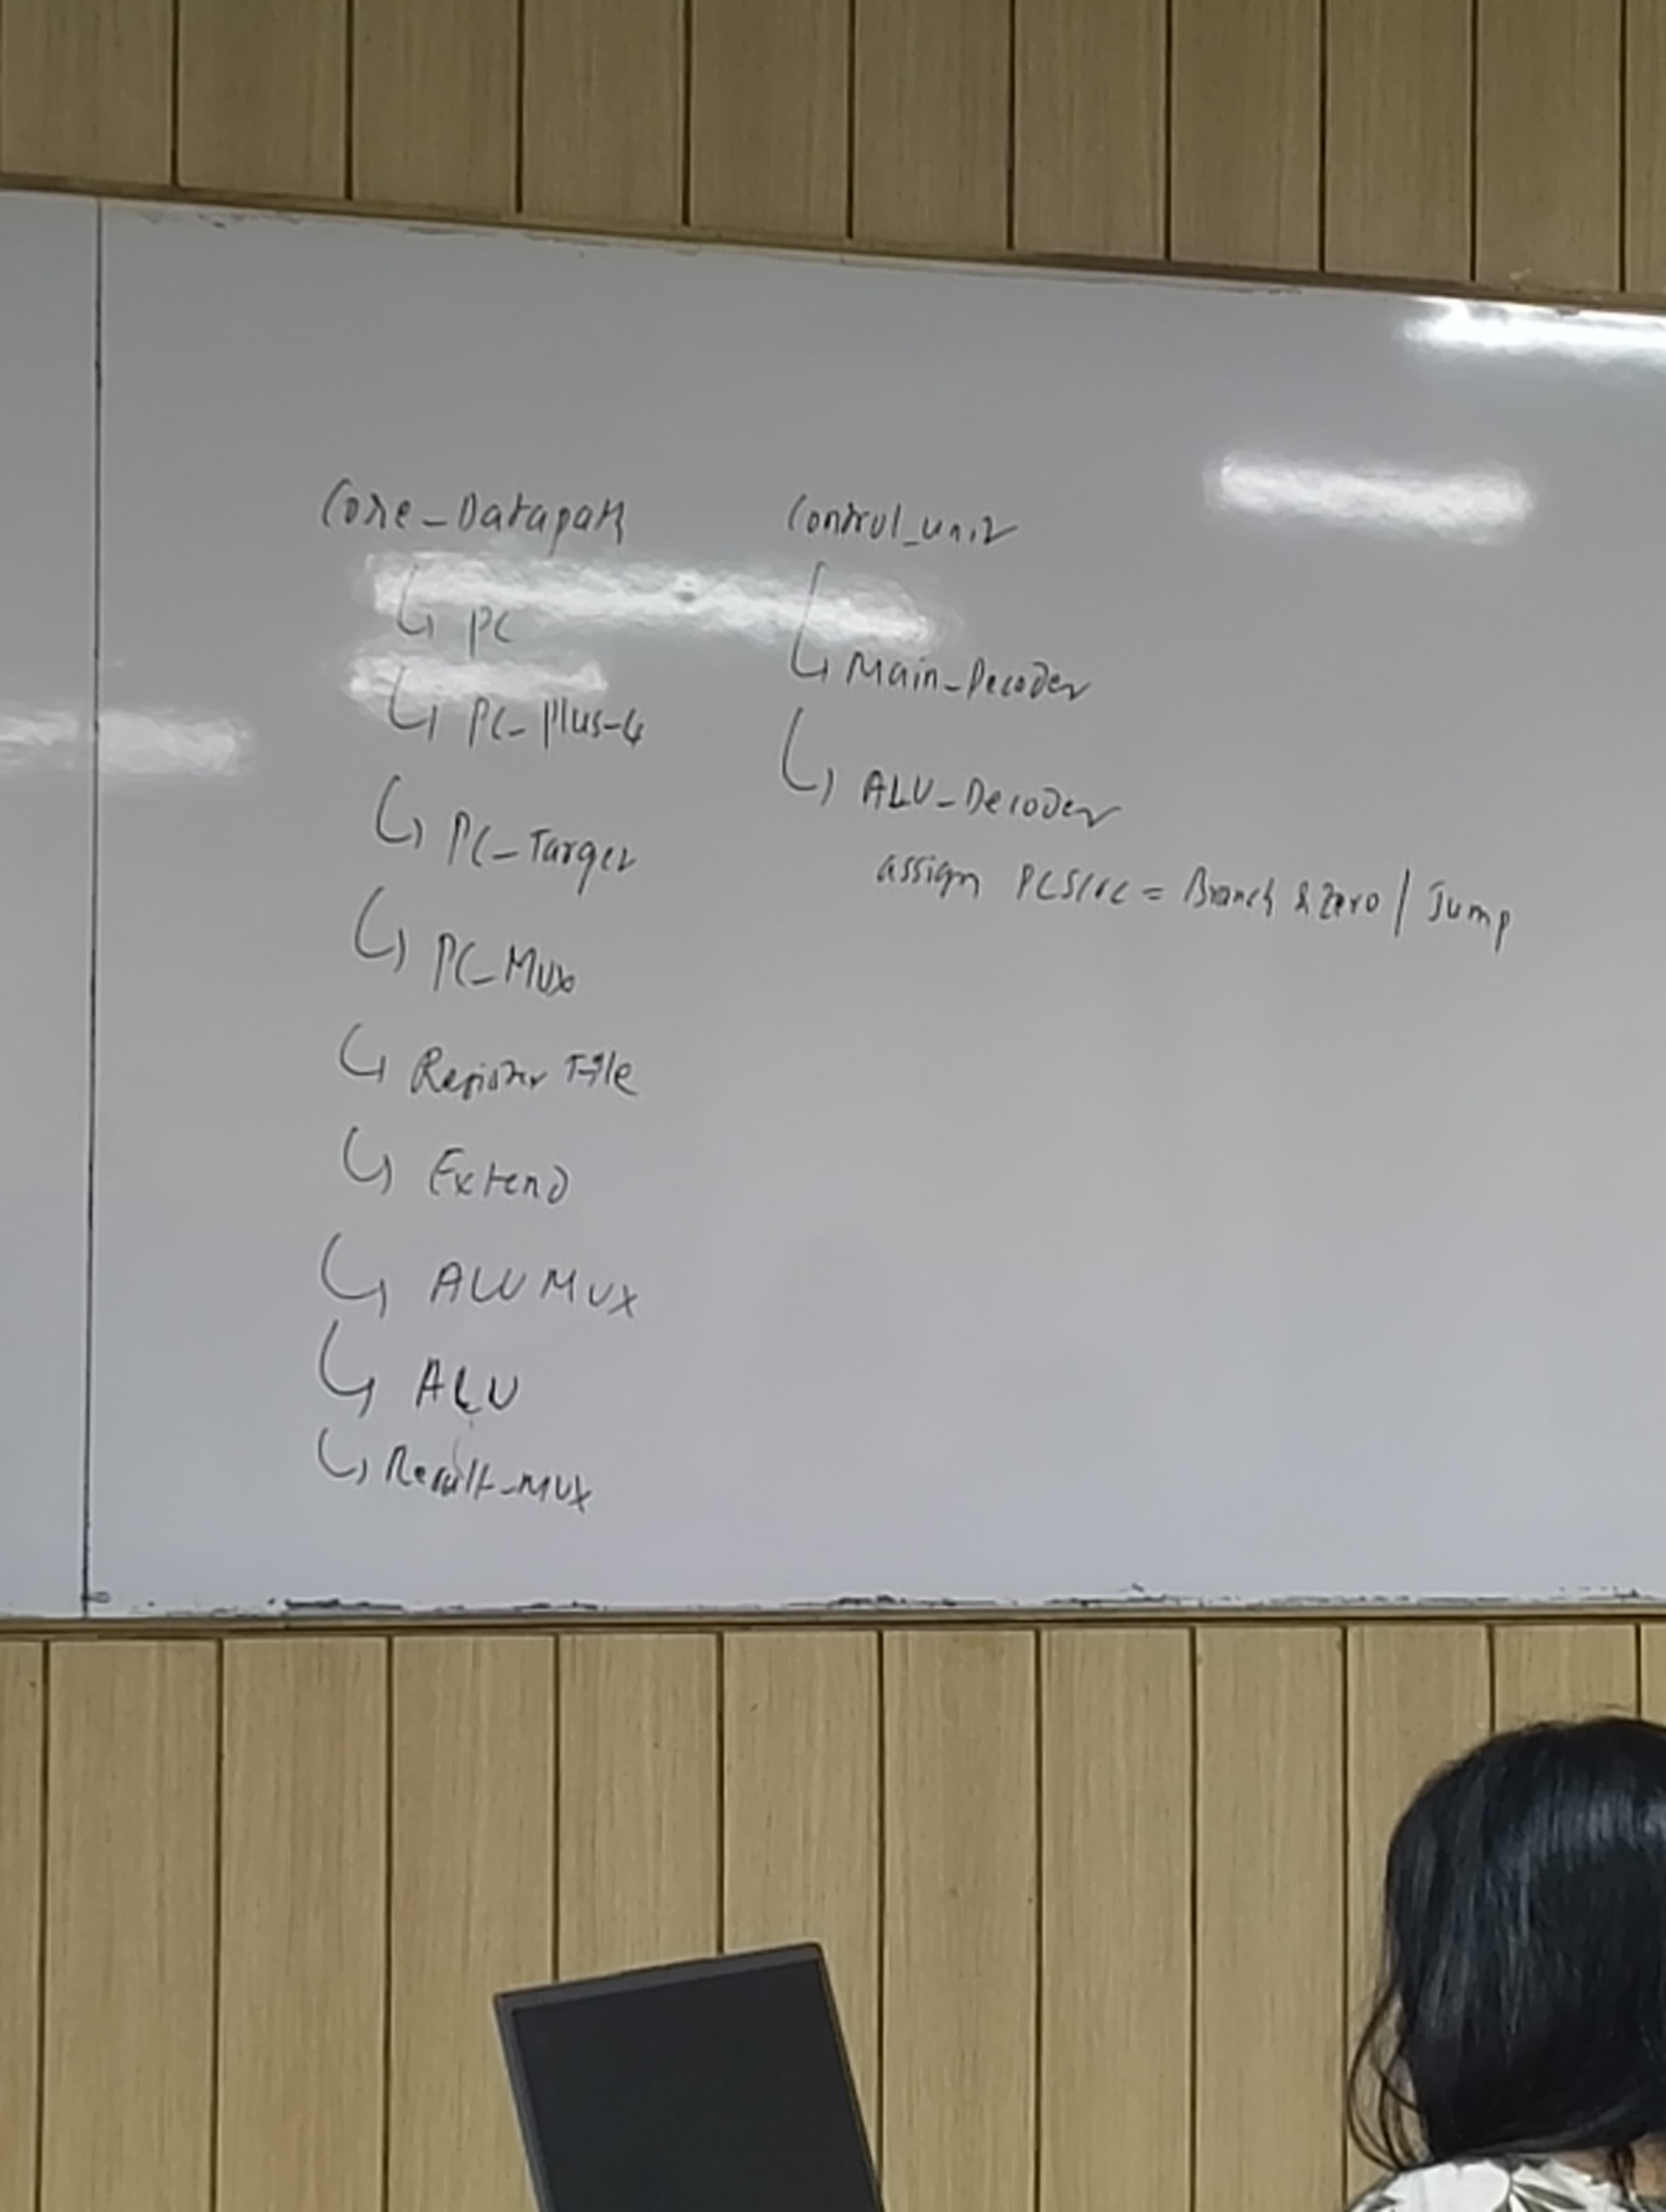 Core_Datapath
↳ PC
↳ PC_Plus_4
↳ PC_Target
↳ PC_Mux
↳ Register File
↳ Extend
↳ ALU MUX
↳ ALU
↳ Result_MUX
Control_unit
↳ Main_Decoder
↳ ALU_Decoder
assign PCSrc = Branch & Zero | Jump